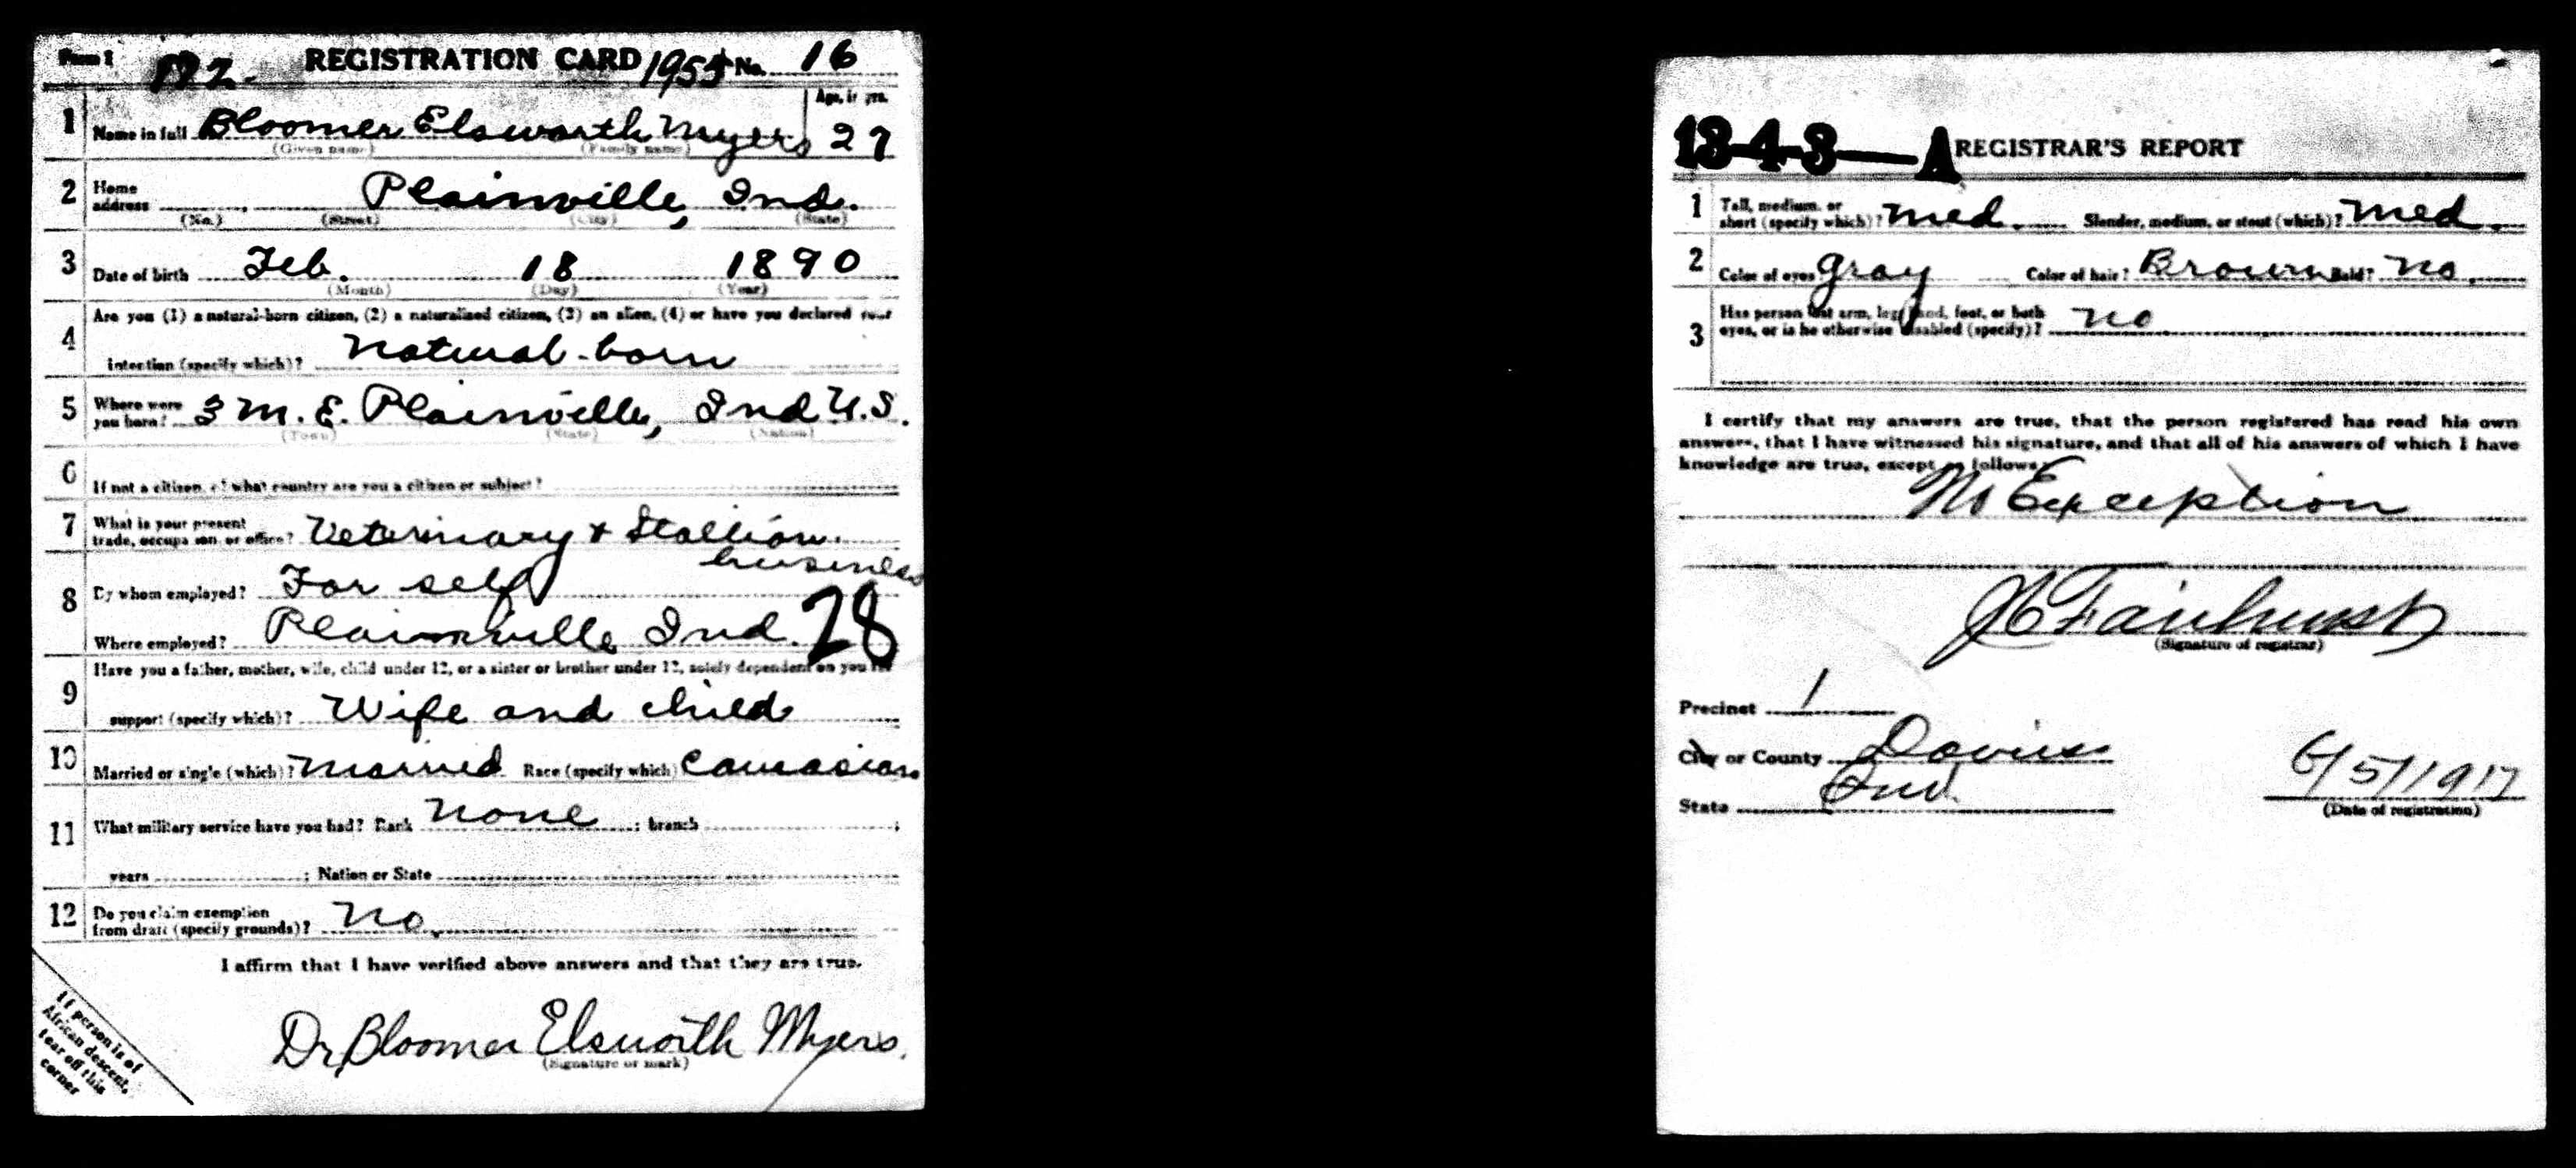 Form 1 REGISTRATION CARD No. 16
1 Name in full Bloomer Elsworth Myers Age, in yrs. 27
(Given name) (Family name)
2 Home address Plainville, Ind.
(No.) (Street) (City) (State)
3 Date of birth Feb. 18 1890
(Month) (Day) (Year)
4 Are you (1) a natural-born citizen, (2) a naturalized citizen, (3) an alien, (4) or have you declared your
intention (specify which)? Natural-born
5 Where were you born? 3 M. E. Plainville, Ind U.S.
(Town) (State) (Nation)
6 If not a citizen, of what country are you a citizen or subject?
7 What is your present trade, occupation, or office? Veterinary & Stallion.
business
8 By whom employed? For self
Where employed? Plainville, Ind. 28
9 Have you a father, mother, wife, child under 12, or a sister or brother under 12, solely dependent on you for
support (specify which)? Wife and child
10 Married or single (which)? Married Race (specify which) Caucasian
11 What military service have you had? Rank None ; branch ;
years ; Nation or State
12 Do you claim exemption from draft (specify grounds)? No.
I affirm that I have verified above answers and that they are true.
Dr Bloomer Elsworth Myers.
(Signature or mark)
If person is of
African descent,
tear off this
corner
13-4-3-A REGISTRAR'S REPORT
1 Tall, medium, or short (specify which)? Med. Slender, medium, or stout (which)? Med.
2 Color of eyes Gray Color of hair? Brown Bald? No.
3 Has person lost arm, leg, hand, foot, or both
eyes, or is he otherwise disabled (specify)? No
I certify that my answers are true, that the person registered has read his own
answers, that I have witnessed his signature, and that all of his answers of which I have
knowledge are true, except as follows:
No Exception
Fairhurst
(Signature of registrar)
Precinct 1
City or County Daviess
State Ind.
6/5/1917
(Date of registration)